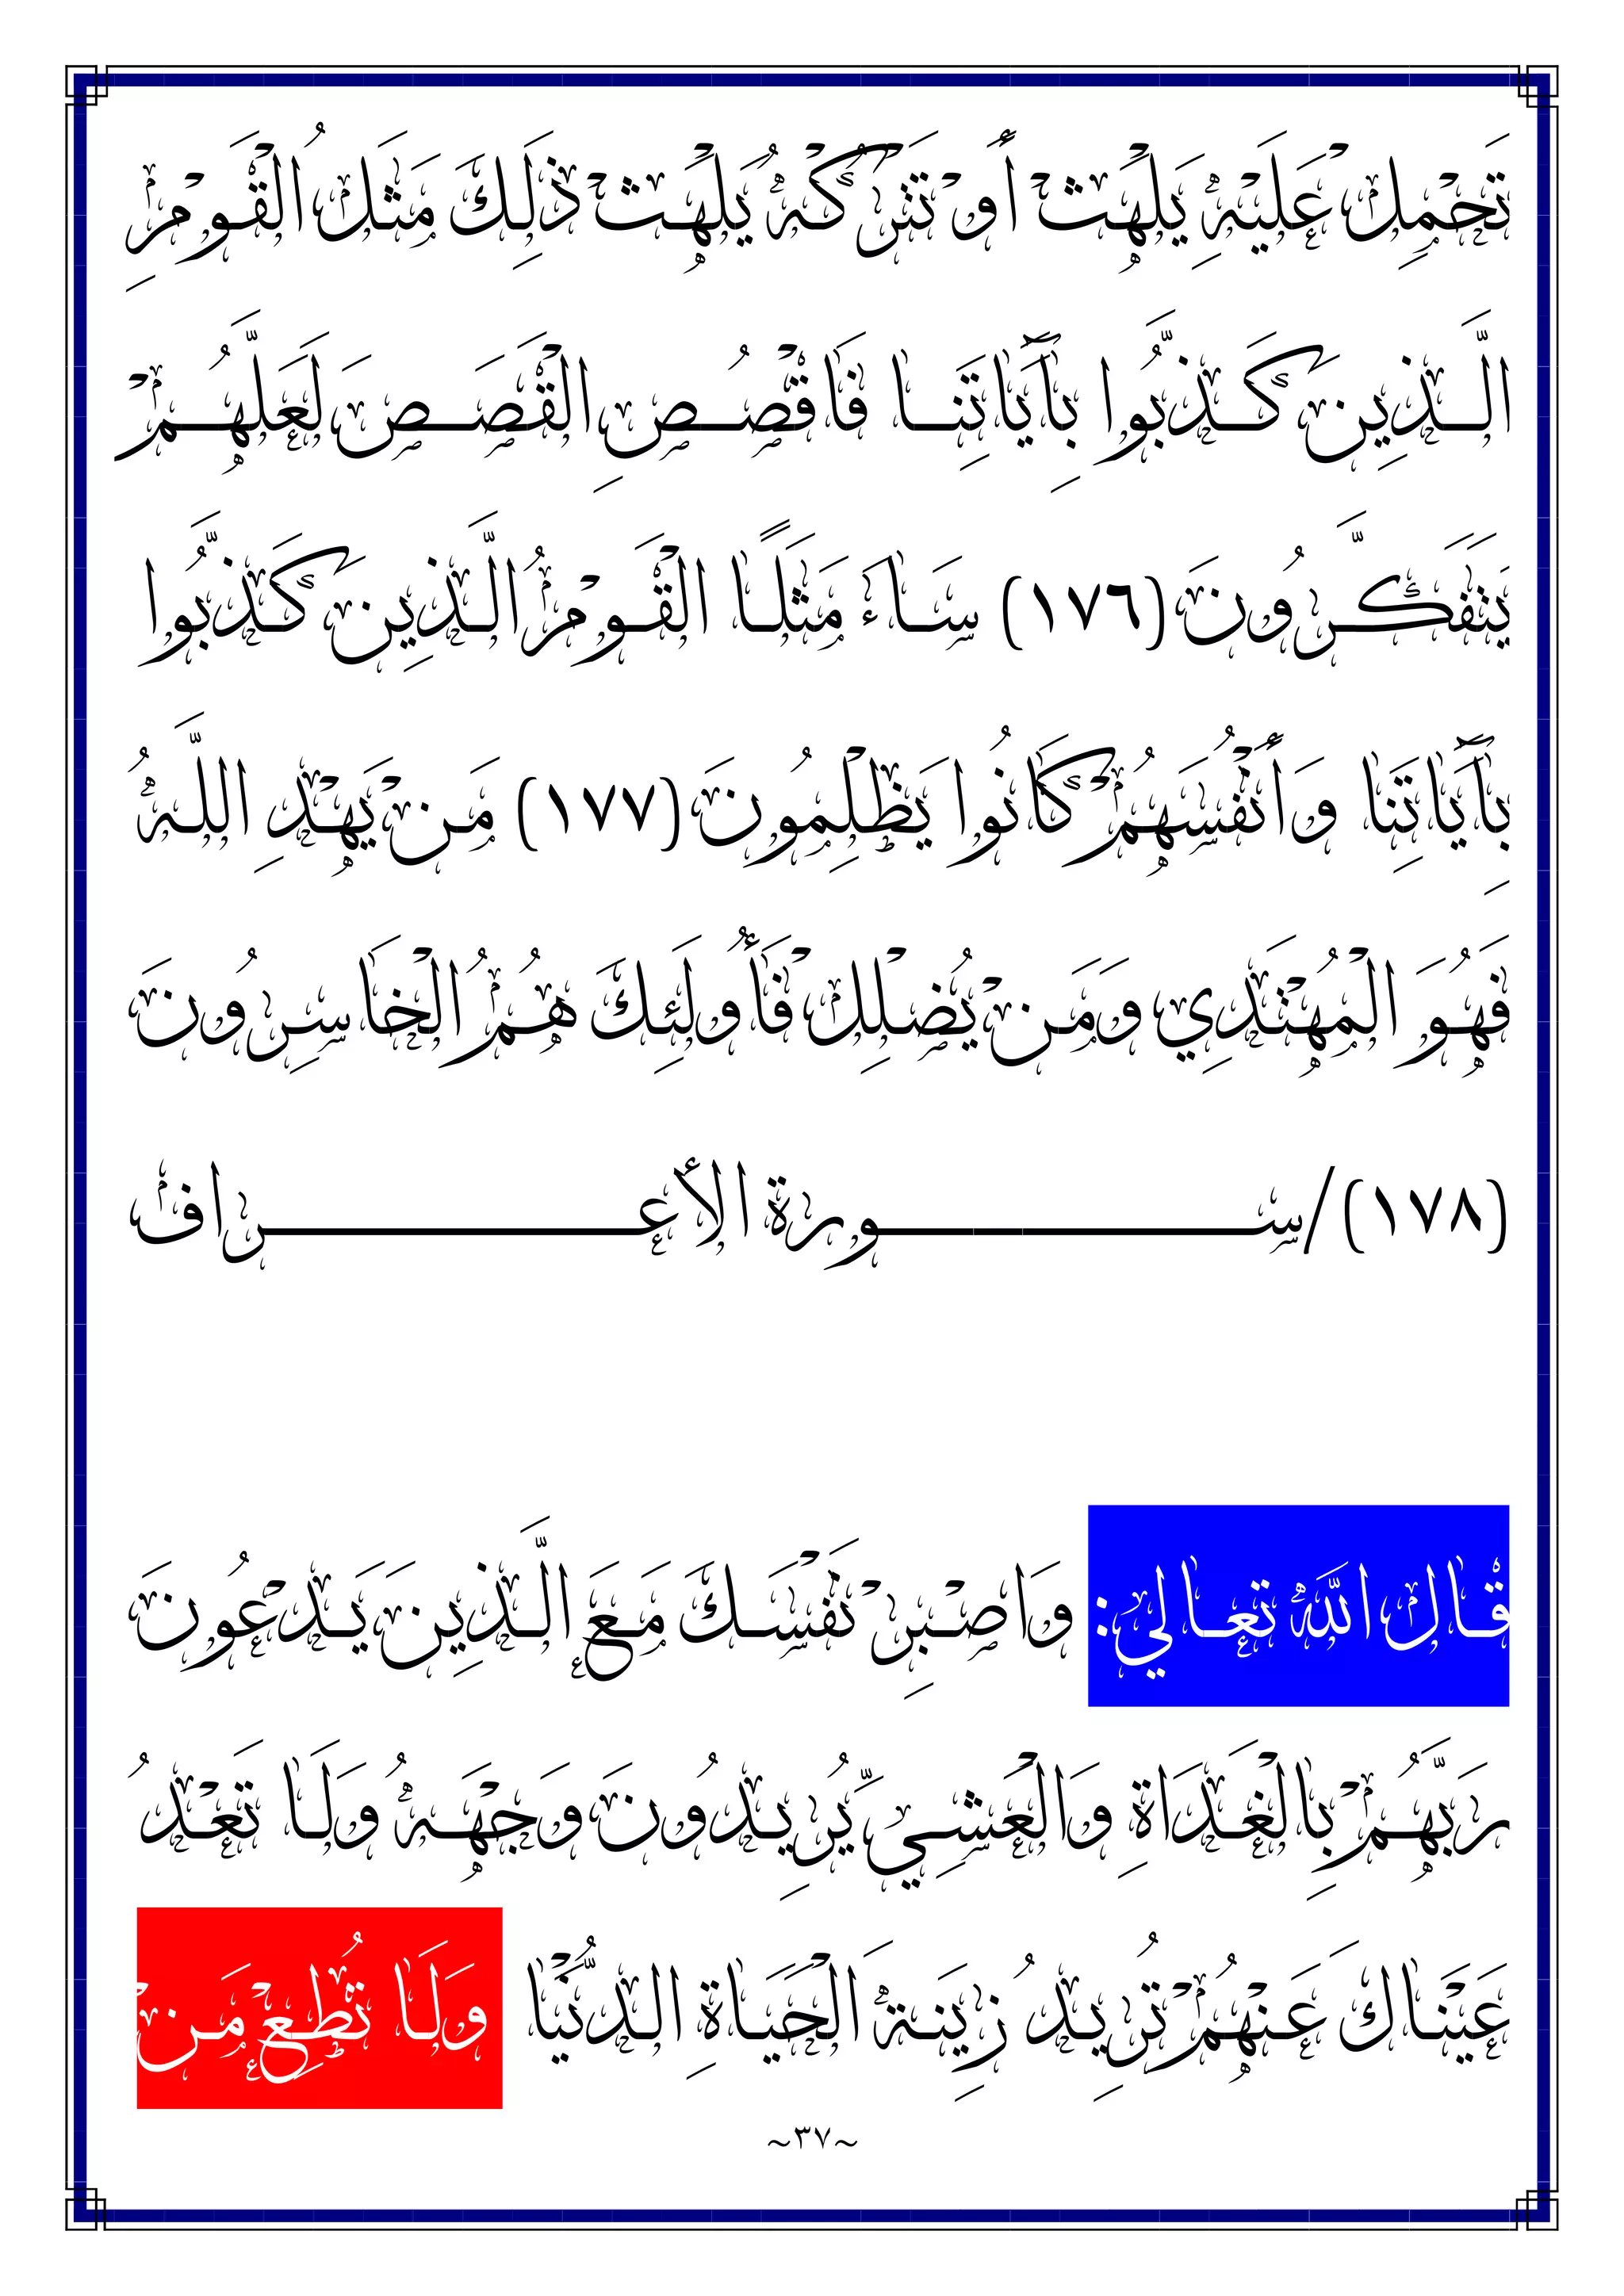 تَحْمِلْ عَلَيْهِ يَلْهَثْ أَوْ تَتْرُكْهُ يَلْهَثْ ذَلِكَ مَثَلُ الْقَوْمِ
الَّذِينَ كَذَّبُوا بِآَيَاتِنَا فَاقْصُصِ الْقَصَصَ لَعَلَّهُمْ
يَتَفَكَّرُونَ (١٧٦) سَاءَ مَثَلًا الْقَوْمُ الَّذِينَ كَذَّبُوا
بِآَيَاتِنَا وَأَنْفُسَهُمْ كَانُوا يَظْلِمُونَ (١٧٧) مَنْ يَهْدِ اللَّهُ
فَهُوَ الْمُهْتَدِي وَمَنْ يُضْلِلْ فَأُولَئِكَ هُمُ الْخَاسِرُونَ
(١٧٨)/ســورة الأعــراف
قال الله تعالي: وَاصْبِرْ نَفْسَكَ مَعَ الَّذِينَ يَدْعُونَ
رَبَّهُمْ بِالْغَدَاةِ وَالْعَشِيِّ يُرِيدُونَ وَجْهَهُ وَلَا تَعْدُ
عَيْنَاكَ عَنْهُمْ تُرِيدُ زِينَةَ الْحَيَاةِ الدُّنْيَا وَلَا تُطِعْ مَنْ
~٣٧~